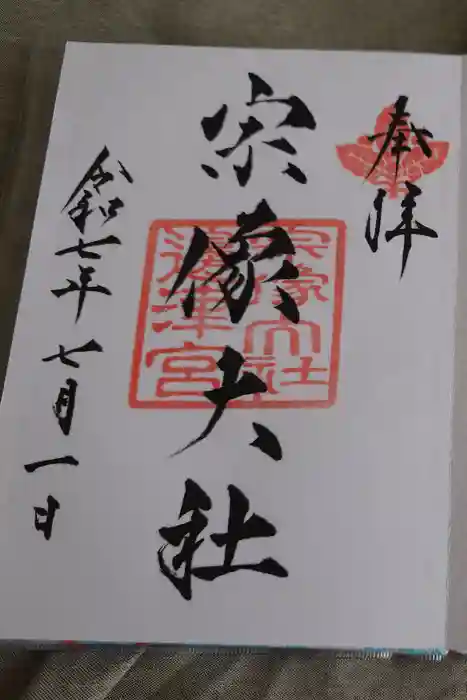 奉拝
宗像大社
宗像大社
邊津宮
令和七年七月一日